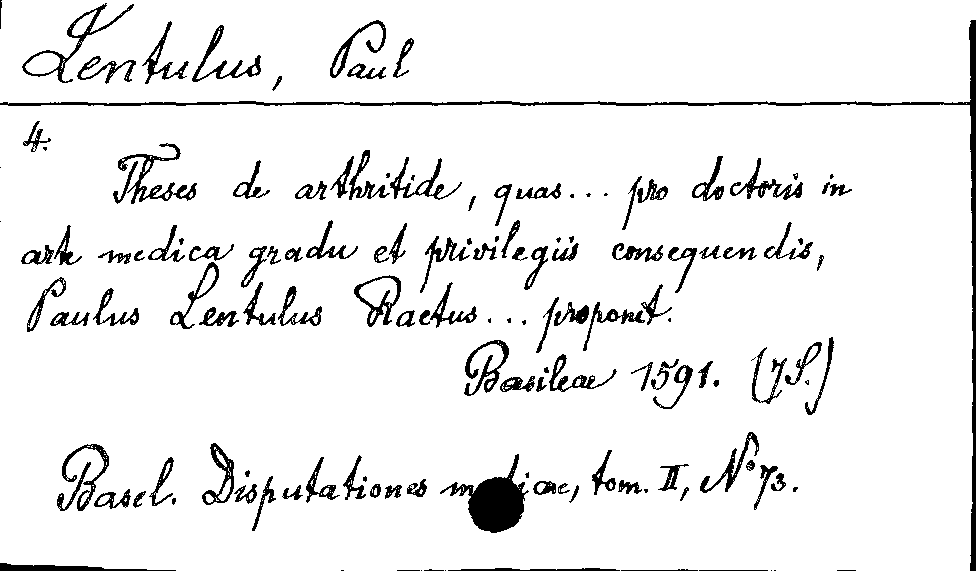 Lentulus, Paul
4.
Theses de arthritide, quas... pro doctoris in
arte medica gradu et privilegiis consequendis,
Paulus Lentulus Raetus... proponit.
Basileae 1591. (7 S.)
Basel. Disputationes medicae, tom. II, No 73.